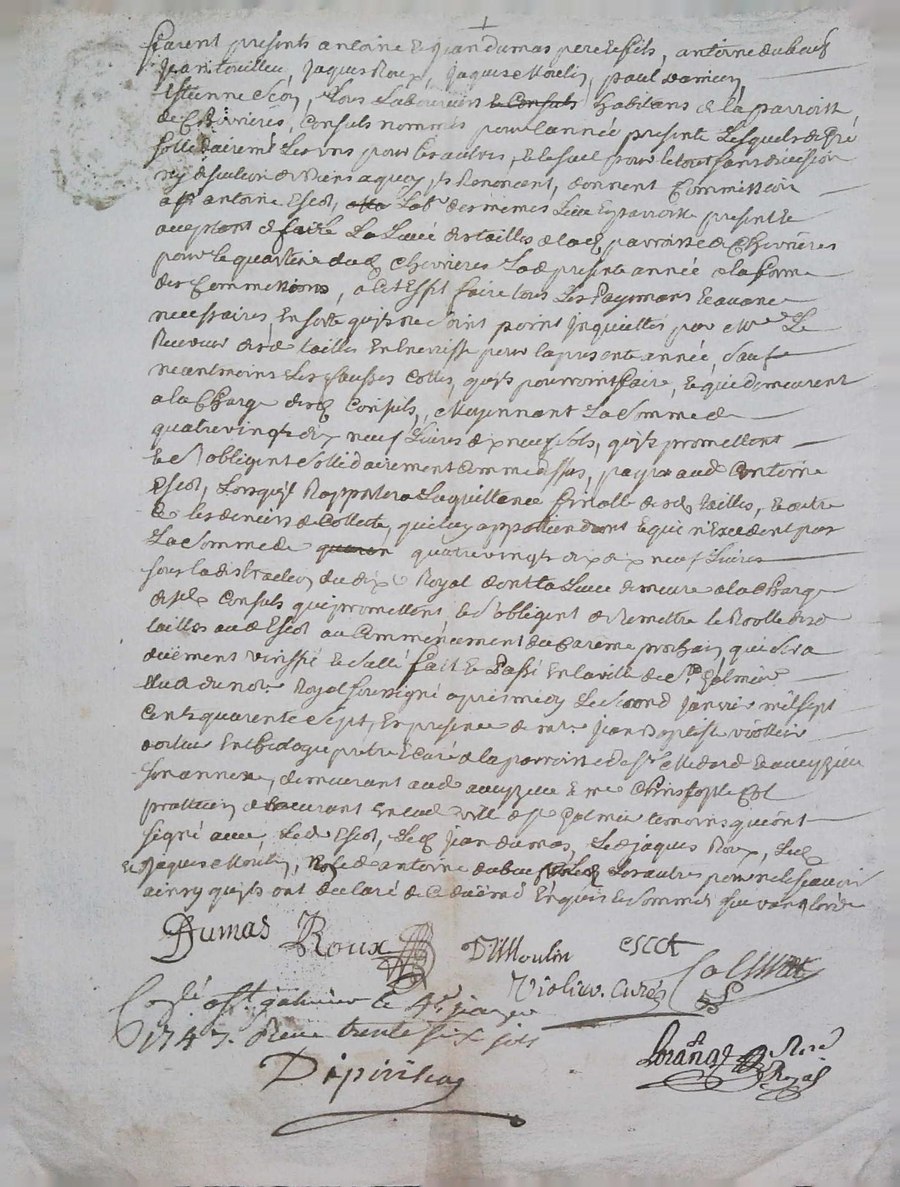 furent presents antoine & Jean dumas pere & fils, antoine dubeuf
Jean touilleu, Jaques Roux, Jaques Moulin, paul
Estienne escot, tous Laboureurs & Consuls habitans de la parroisse
de Chevrieres, Consuls nommés pour l'année presente Lesquels de gré
sollidairemt Les uns pour les autres, & le seul pour le tout sans division
ny discution de biens a quoy ils Renoncent, donnent Commission
a Sr antoine Escot, Labr des memes Lieu & parroisse present &
acceptant de faire La Levée des tailles de lad parroisse de Chevrieres
pour le quartier dud Chevrieres Lad presente année a la forme
des Commissions, a Cet Effet faire tous Les Paymans & avance
necessaires, En sorte qu'ils ne soint point Inquiettes par Mr Le
Receveur desd tailles En Exercisse pour la presente année, Sauf
neantmoins Les fausses Cottes, qu'ils pourroint faire, & qui demeurent
a la Charge desd Consuls, Moyennant La somme de
quatre vingts dix neuf Livres dix neuf sols, qu'ils promettent
& s'obligent sollidairement Comme dessus, payer aud antoine
Escot, Lorsqu'il Rapportera La quittance finalle desd tailles, & outre
& les deniers de Collecte, qui luy appartiendront & qui n'Excedent pas
La somme de quatre vingt dix neuf Livres
sous la distraction du dixe Royal dont la Levée demeure a la Charge
desd Consuls qui promettent & s'obligent de Remettre le Roolle desd
tailles aud Escot au Commencement du Careme prochain qui sera
duëment veriffié & sallé fait & Passé En la ville de St Galmier
Etude du nore Royal soussigné apres midy Le second Janvier mil sept
Cents quarente sept, En presence de mre Jean Baptiste viollier
docteur En theologie pretre & Curé de la parroisse de St Medard & aveyzieu
son annexe, demeurant aud aveyzieu & me Christophle Col
pratticien demeurant En lad ville de St Galmier temoins qui ont
signé avec Led Escot, Led Jean dumas, Led Jaques Roux, Led
& Jaques Moulin, non led antoine dubeuf Les autres pour ne le sçavoir
ainsy qu'ils ont declaré de Ce duëmt Enquis & sommés suivant l'orde
Dumas Roux D Moulin escot
Violier. Curé Col
Conllé a St galmier le 4e janvier
1747. Reçu trente six sols
Loranger Nore
Royal